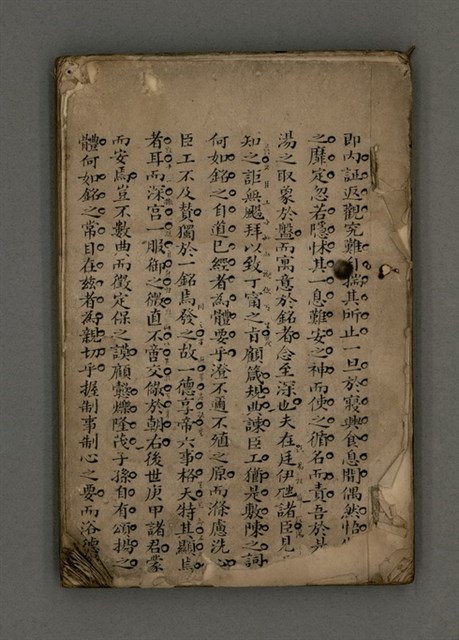 即內証返觀究難自揣其所止一旦於寢興食息間偶然悟
之靡定忽若隱怵其一息難安之神而使之循名而責吾於是
湯之取象於盤而寓意於銘者念至深也夫在廷伊虺諸臣見
知之詎無颺拜以致丁甯之旨顧箴規曲諫臣工猶是敷陳之詞
何如銘之自道已經者為體要乎澄不邇不殖之原而滌慮洗心
臣工不及贊獨於一銘焉發之故一德享帝六事格天特其顯焉
者耳而深宮一服御之微直不啻交儆於朝右後世庚甲諸君蒙
而安焉豈不數典而徵定保之謨顧鷇爍隆茂子孫自有頌揚之
體何如銘之常目在茲者為親切乎握制事制心之要而浴德